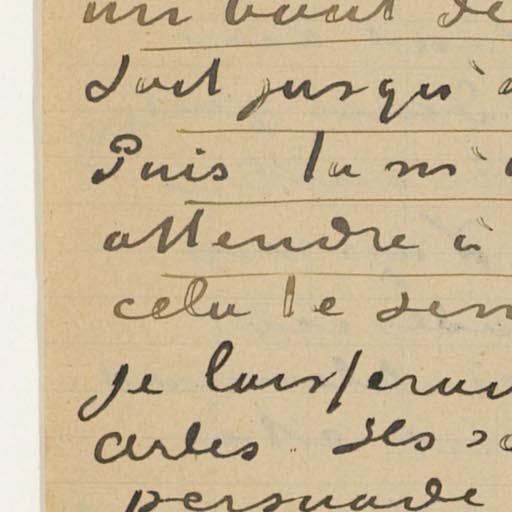 un bout de
soit jusqu'à
Puis tu m'
attendre à
cela te sem
je laisserai
arles. Ils so
persuade